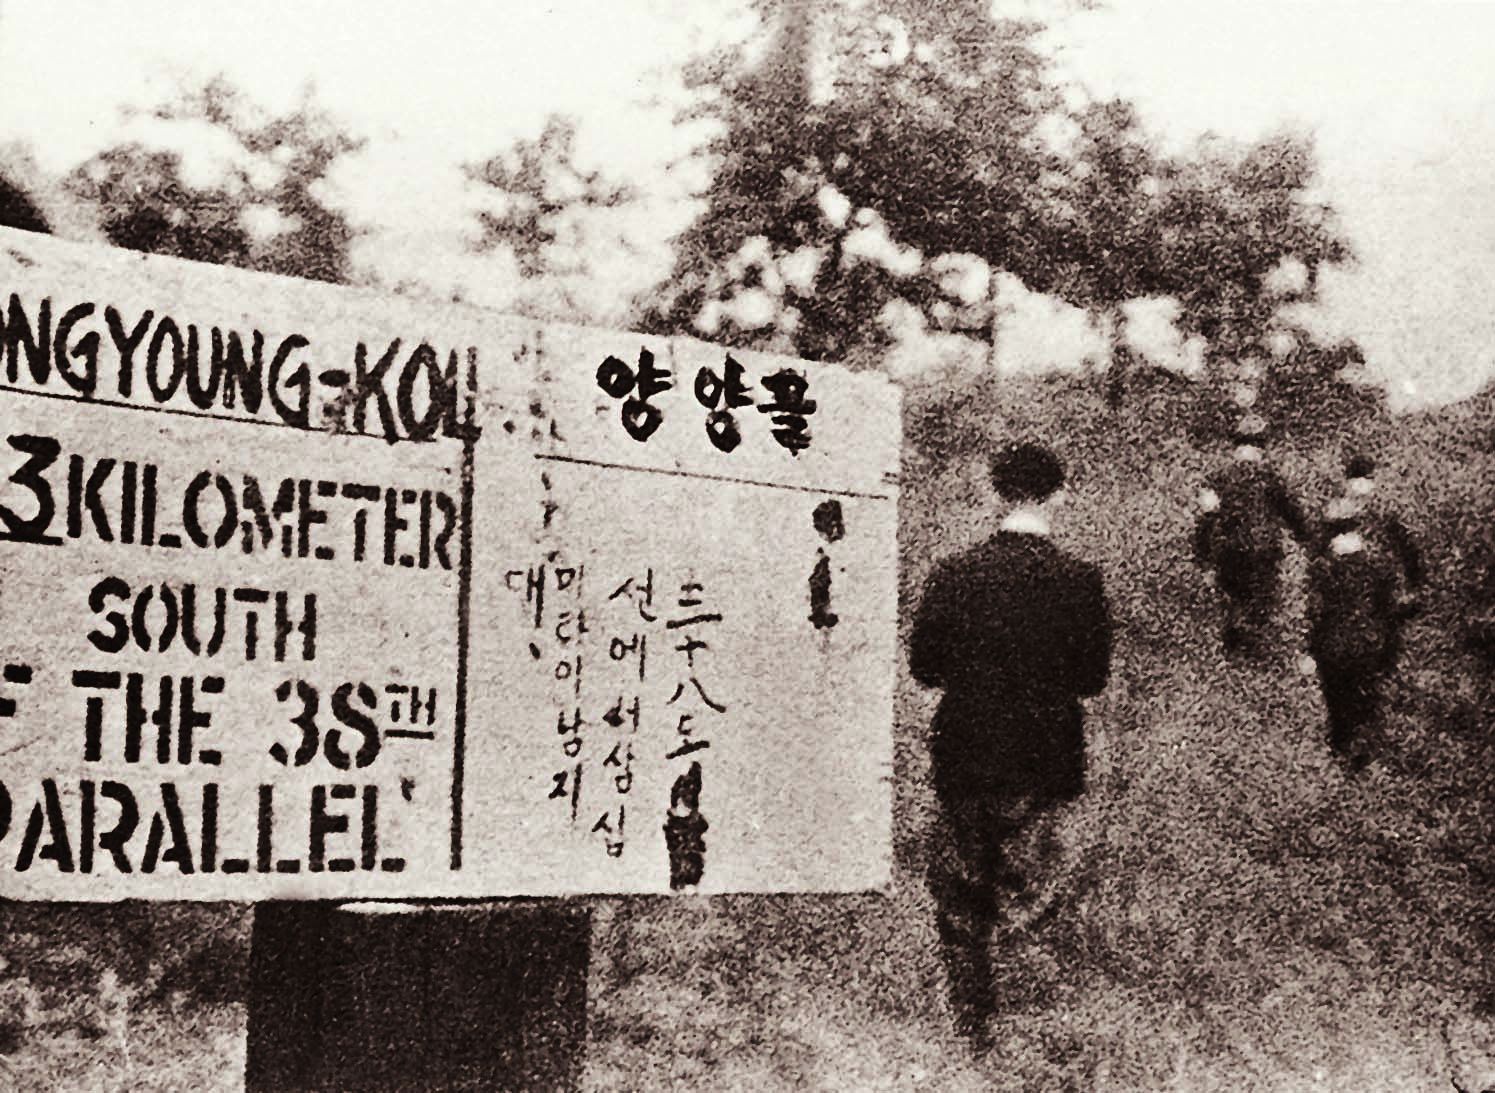 ONGYOUNG-KOL
3 KILOMETER
SOUTH
F THE 38TH
PARALLEL
양양골
三十八도
선에서삼십
미타이남지
대